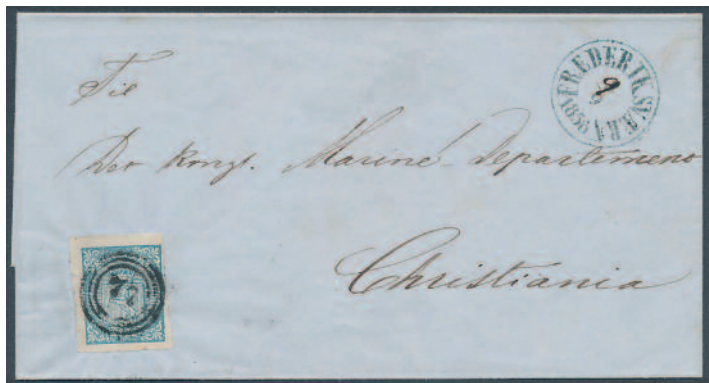 Til
Det Kongl. Marine-Departement
Christiania
FREDERIKSVÆRN 1856
9